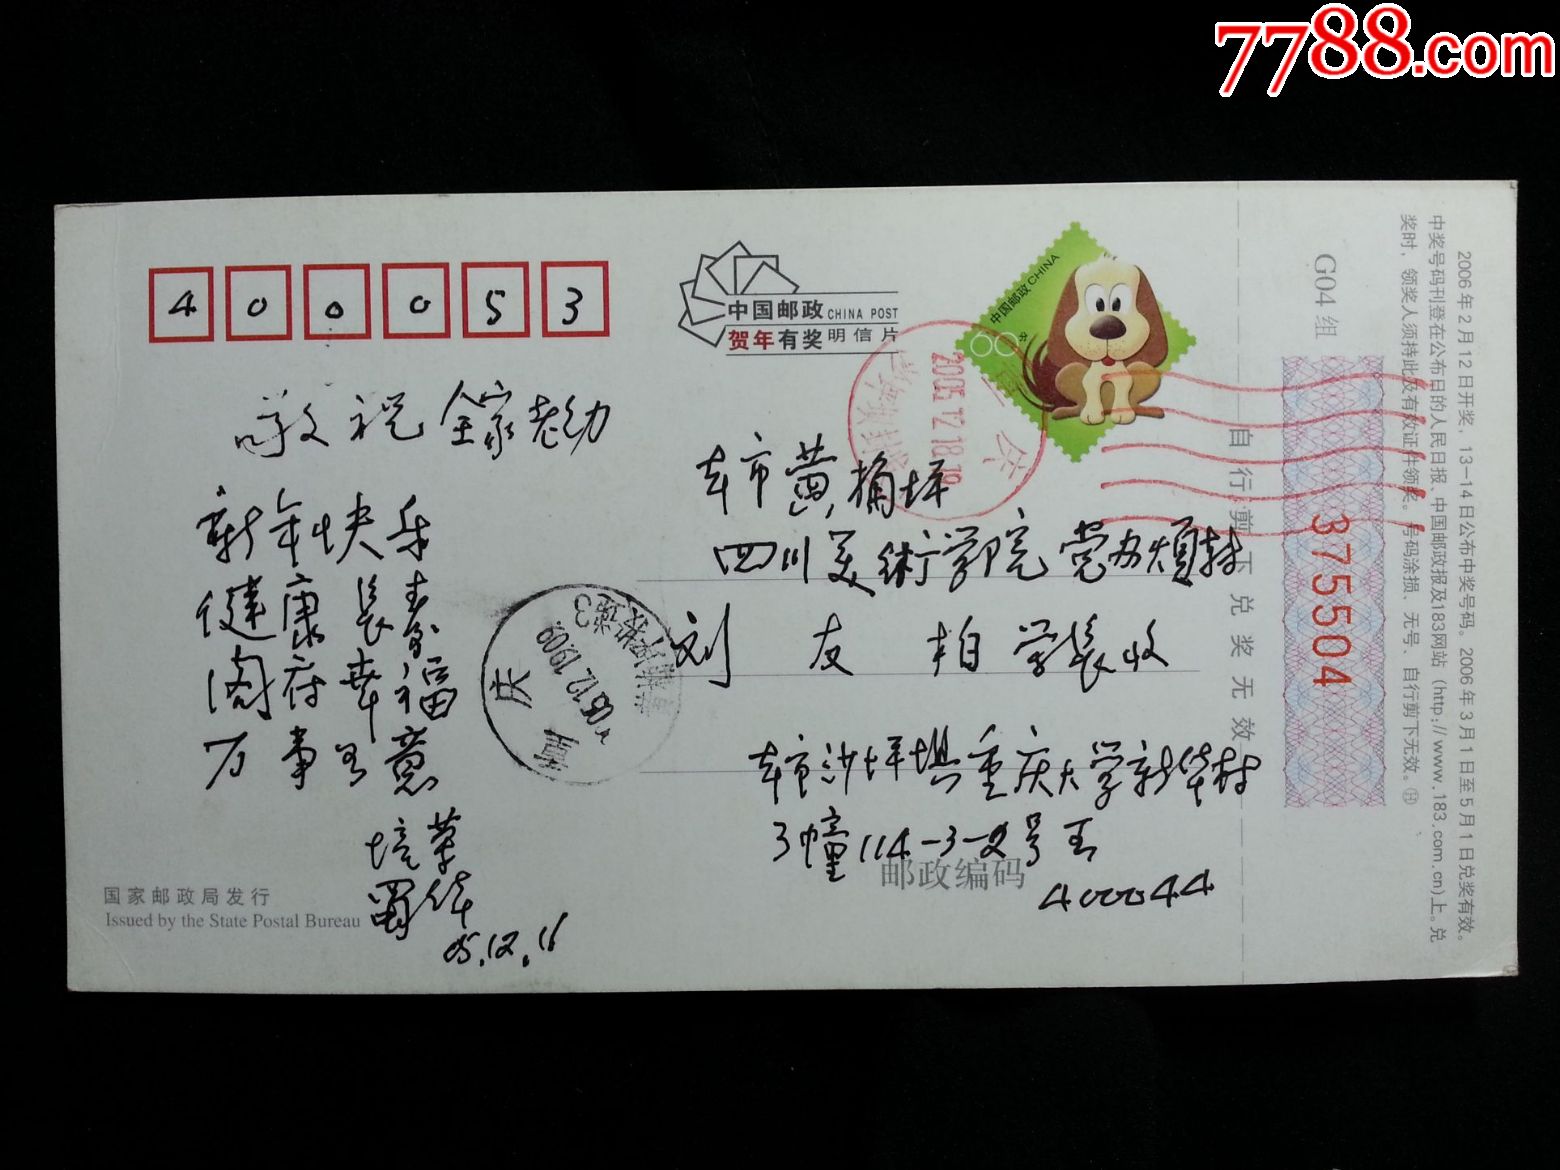 7788.com
4 0 0 0 5 3
中国邮政 CHINA POST
贺年有奖明信片
中国邮政 CHINA
60分
2005.12.18.18
敬祝全家老幼
新年快乐
健康长寿
阖府幸福
万事如意
培华
蜀华
05.12.16
本市黄桷坪
四川美術学院党办烦转
刘友柏学长收
本市沙坪垻重庆大学新华村
3幢114-3-2号王
400044
邮政编码
重庆
05.12.19.09
国家邮政局发行
Issued by the State Postal Bureau
自行剪下兑奖无效
G04组
375504
2006年2月12日开奖，13—14日公布中奖号码。2006年3月1日至5月1日兑奖有效。
中奖号码刊登在公布日的人民日报、中国邮政报及183网站（http://www.183.com.cn)上。兑
奖时，领奖人须持此及有效证件领奖。号码涂损、无号、自行剪下无效。